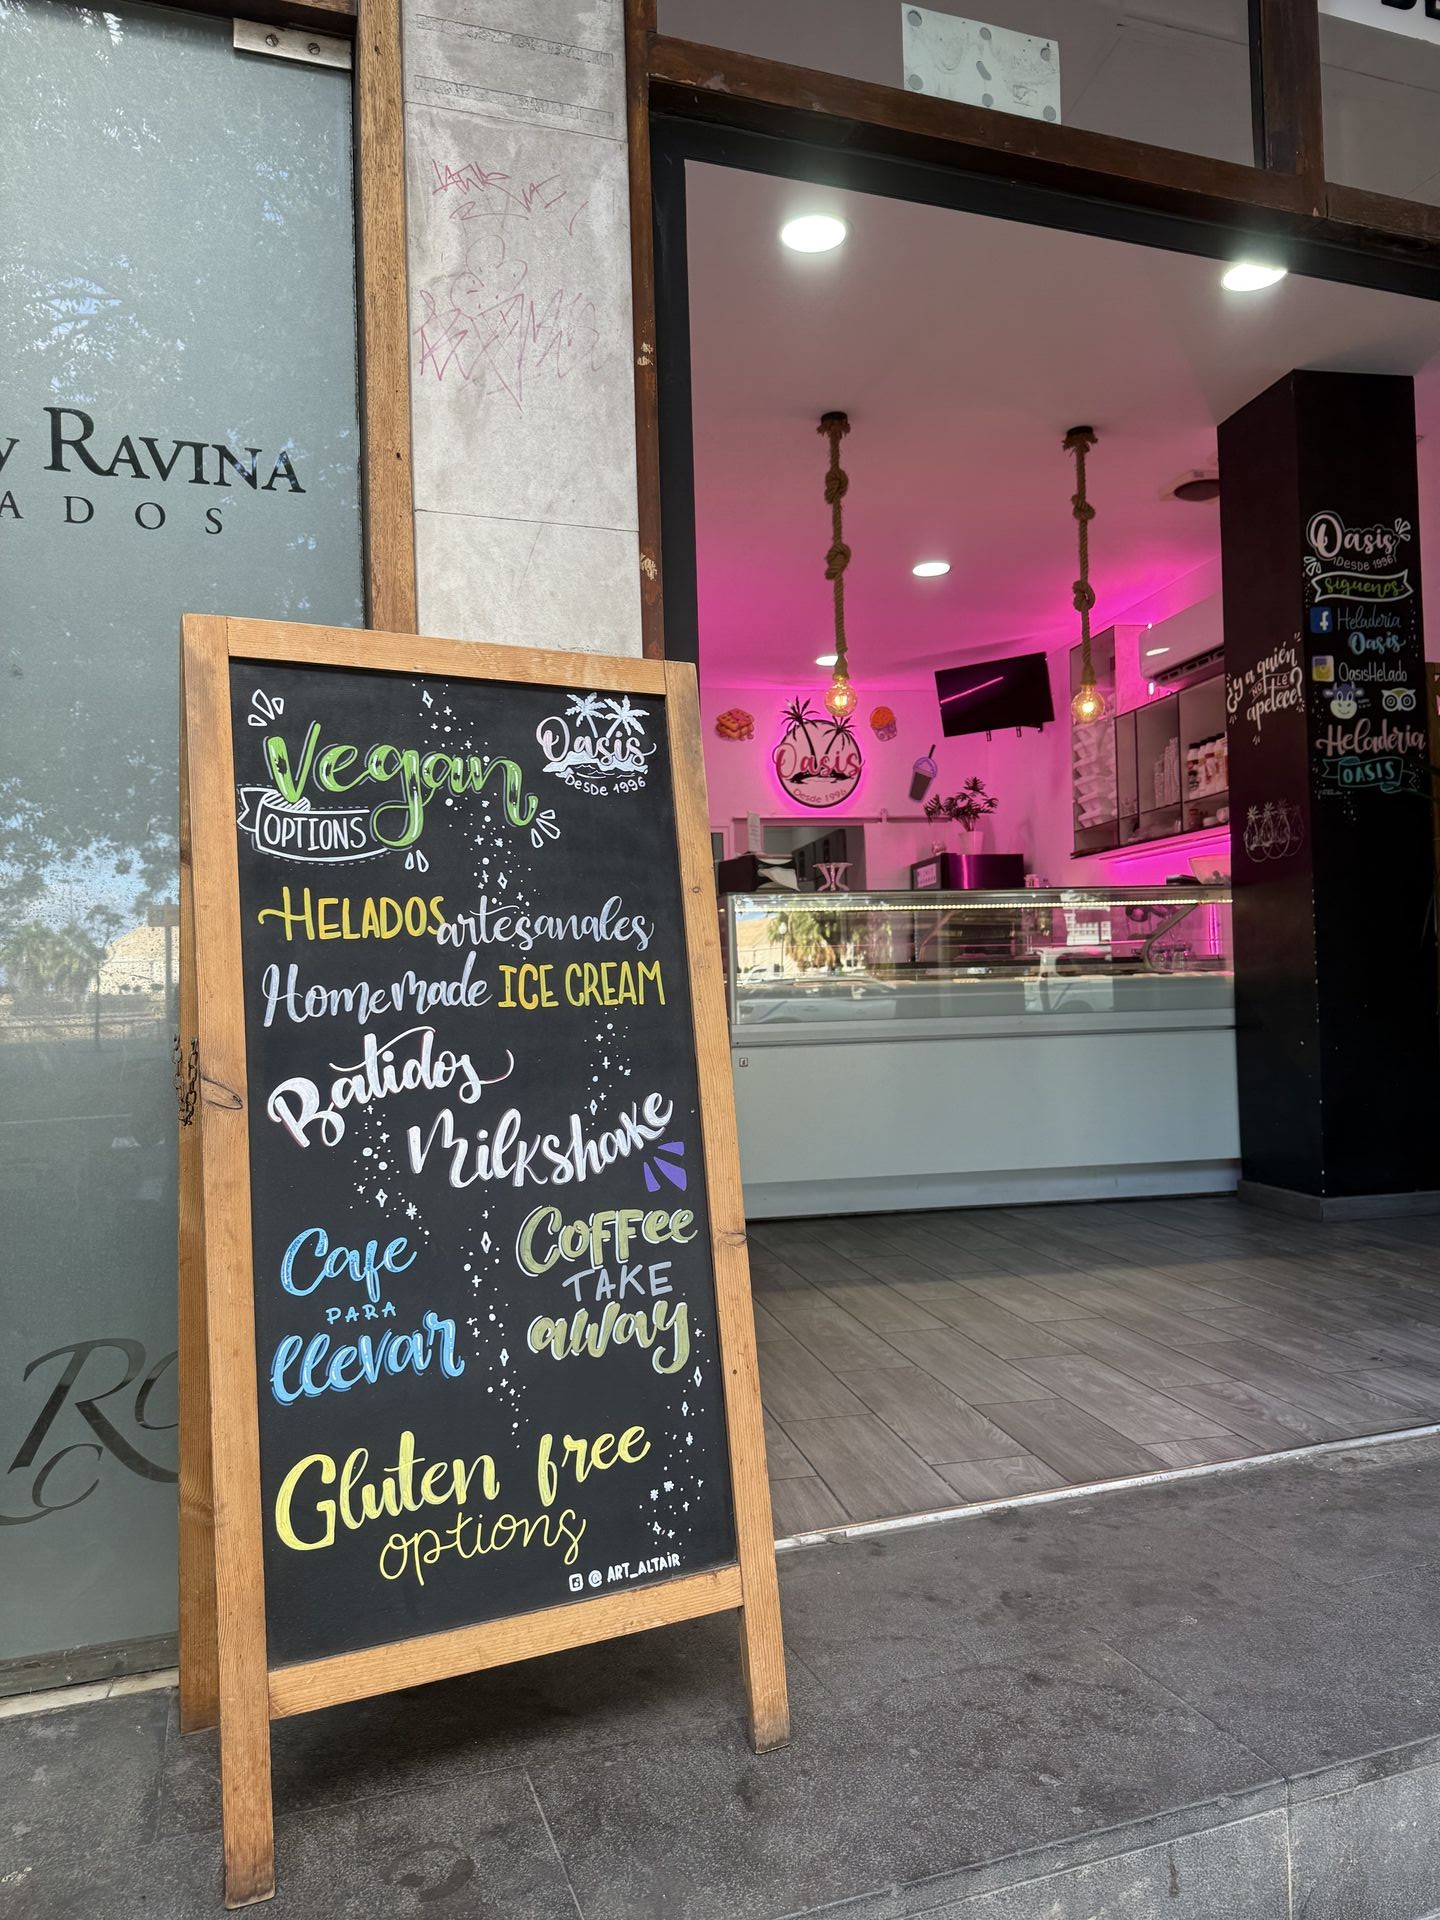 y RAVINA
ADOS
Vegan
OPTIONS
Oasis
Desde 1996
HELADOS artesanales
Homemade ICE CREAM
Batidos
Milkshake
Cafe
PARA
llevar
COFFee
TAKE
away
Gluten free
options
@ ART_ALTAIR
RC
C
Oasis
Desde 1996
¿Y a quién
NO LE
apetece?
Oasis
Desde 1996
síguenos
f Heladería
Oasis
OasisHelado
Heladería
OASIS